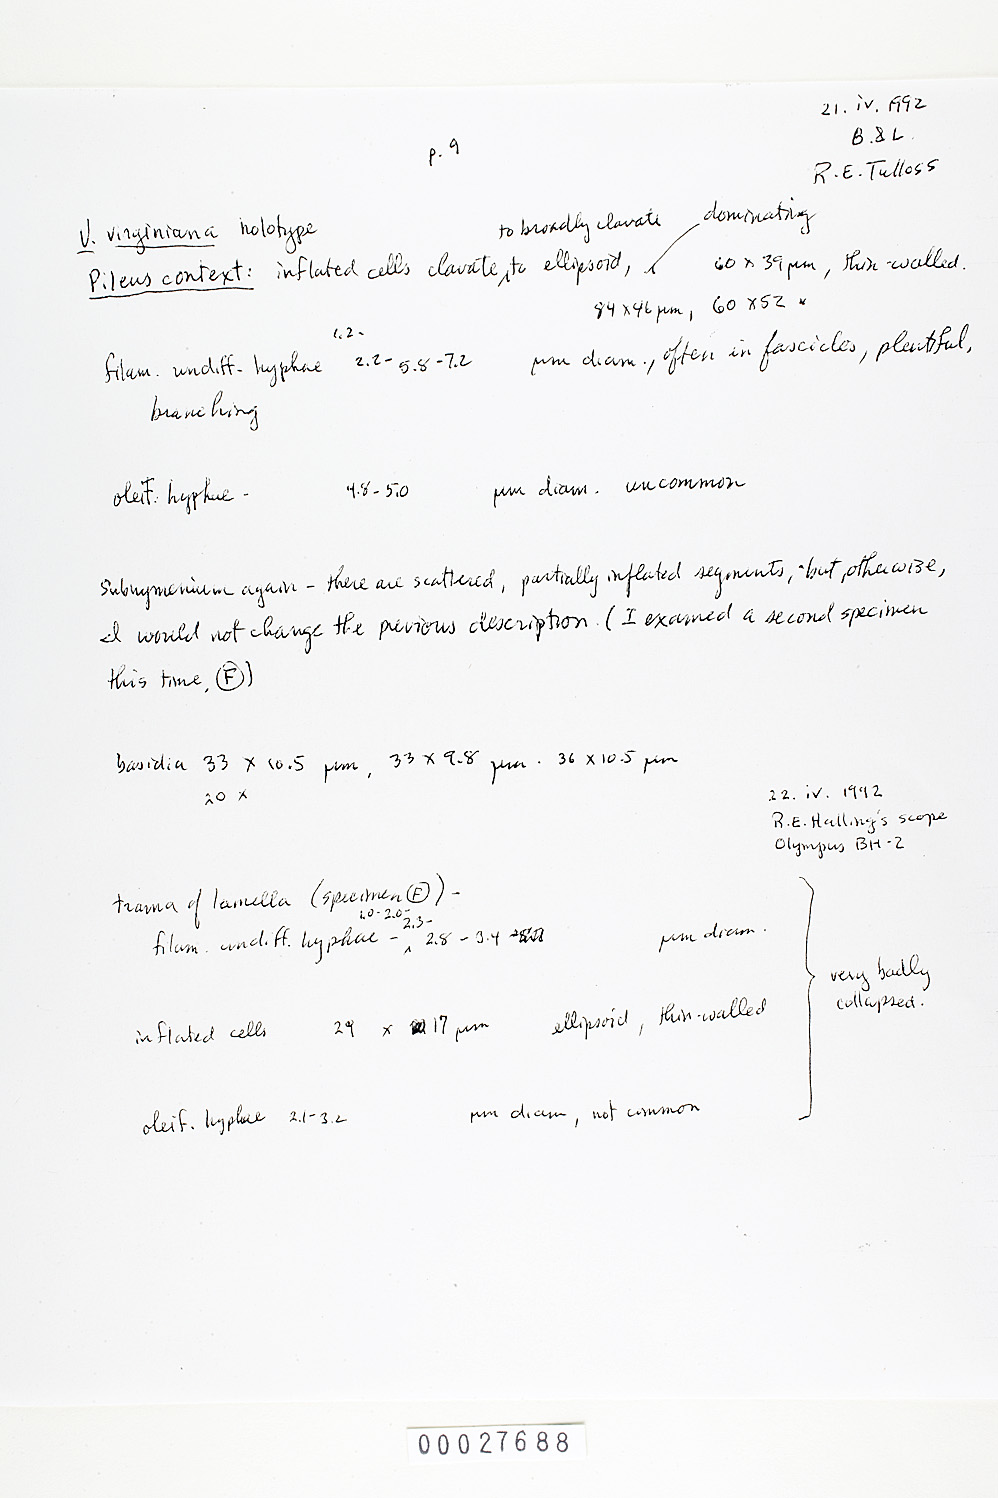 21. iv. 1992
p. 9
B & L.
R. E. Tulloss
V. virginiana holotype
to broadly clavate dominating
Pileus context: inflated cells clavate, to ellipsoid, 60 x 39 µm, thin-walled.
84 x 46 µm, 60 x 52 x
1.2-
filam. undiff. hyphae 2.2-5.8-7.2 µm diam., often in fascicles, plentiful,
branching
oleif. hyphae - 4.8-5.0 µm diam. uncommon
Subhymenium again - there are scattered, partially inflated segments, but, otherwise,
I would not change the previous description. (I examed a second specimen
this time, F)
basidia 33 x 10.5 µm, 33 x 9.8 µm. 36 x 10.5 µm
20 x
22. iv. 1992
R.E. Halling's scope
Olympus BH-2
trama of lamella (specimen F) -
1.0-2.0-
2.3-
filam. undiff. hyphae - 2.8 - 3.4 µm diam.
very badly
collapsed.
inflated cells 29 x 17 µm ellipsoid, thin-walled
oleif. hyphae 2.1-3.2 µm diam, not common
00027688